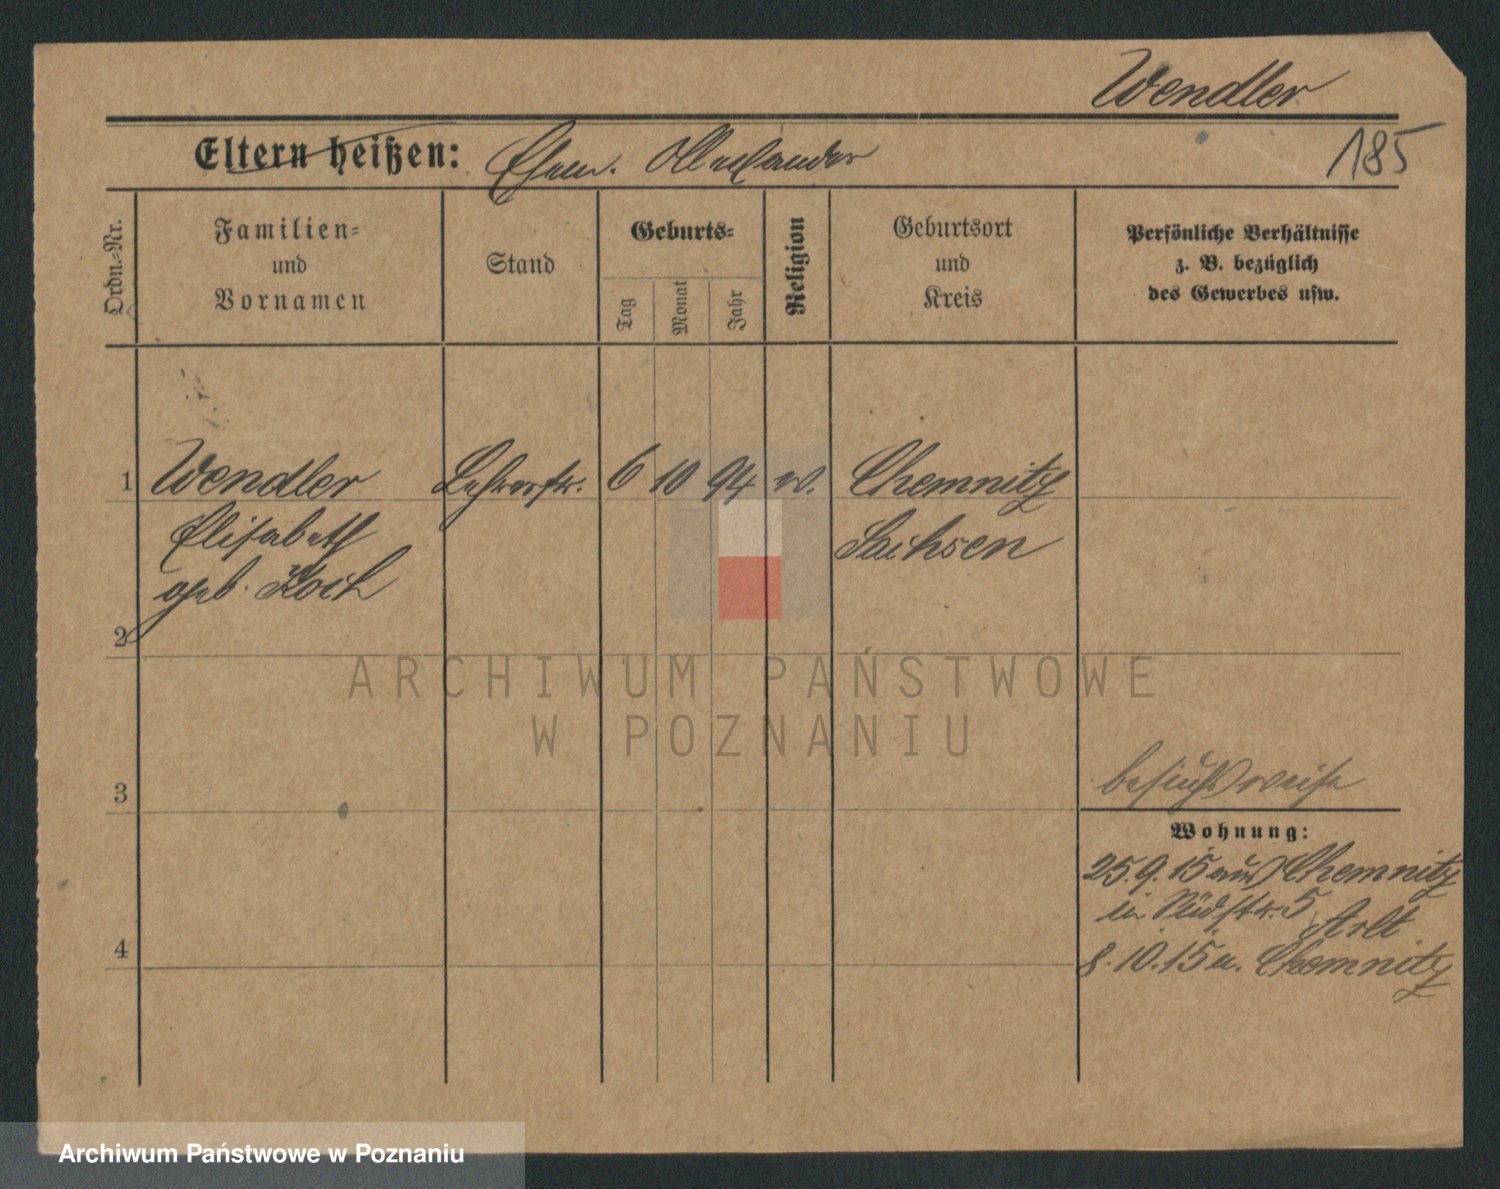 Wendler
185
Eltern heißen: Ehem. Allexander
Ordn.-Nr.
Familien-
und
Vornamen
Stand
Geburts-
Tag
Monat
Jahr
Religion
Geburtsort
und
Kreis
Persönliche Verhältnisse
z. B. bezüglich
des Gewerbes usw.
1 Wendler Lehrersfr. 6 10 94 ev. Chemnitz
Elisabeth Sachsen
geb. Koch
2
ARCHIWUM PAŃSTWOWE
W POZNANIU
besuchsweise
3
Wohnung:
25.9.15 aus Chemnitz
in Südstr. 5 Arlt
4
8.10.15 n. Chemnitz
Archiwum Państwowe w Poznaniu